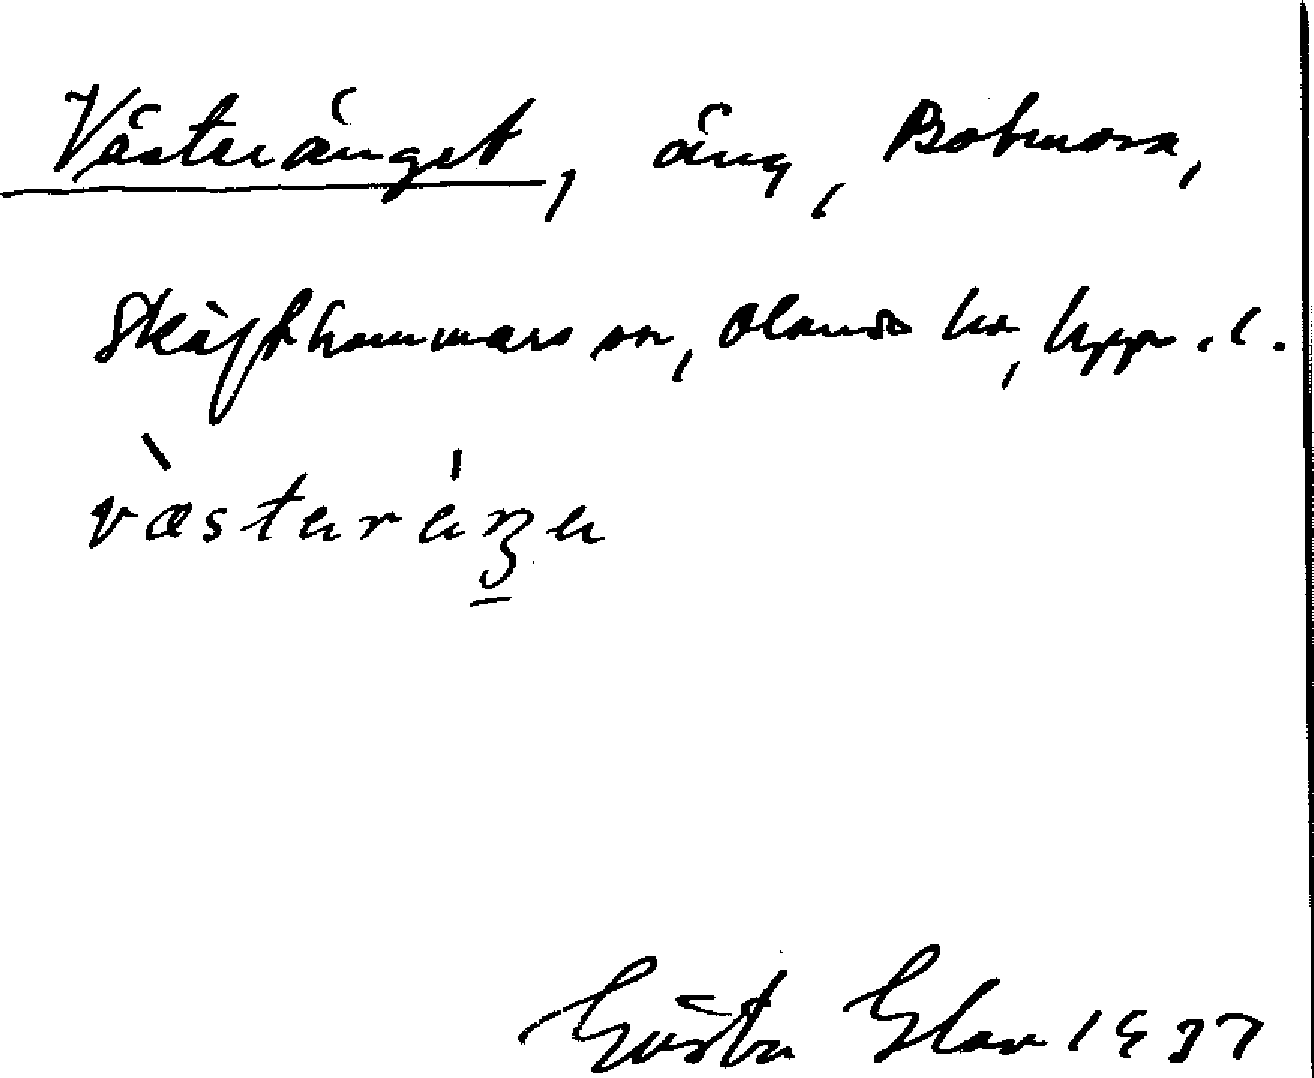 Västeränget, äng, Botmora,
Skäfthammars sn, Olands hd, Uppl.
væsterèŋe
Gösta Elov 1937